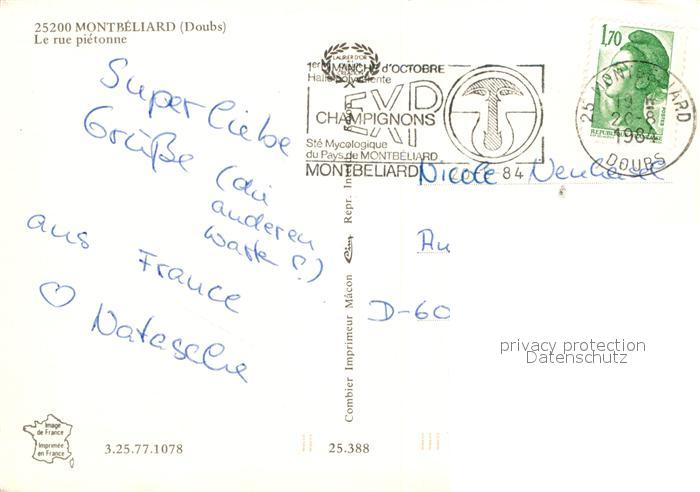 25200 MONTBÉLIARD (Doubs)
Le rue piétonne
Super liebe
Grüße (die
anderen
warten?)
aus France
♡ Natascha
1er DIMANCHE d'OCTOBRE
Halle polyvalente
EXPO
CHAMPIGNONS
Sté Mycologique
du Pays de MONTBÉLIARD
MONTBELIARD
84
1,70
25 MONTBELIARD
19 H
26-8
1984
DOUBS
Nicole
Au
D-60
Combier Imprimeur Mâcon
Image
de France
Imprimée
en France
3.25.77.1078
25.388
privacy protection
Datenschutz